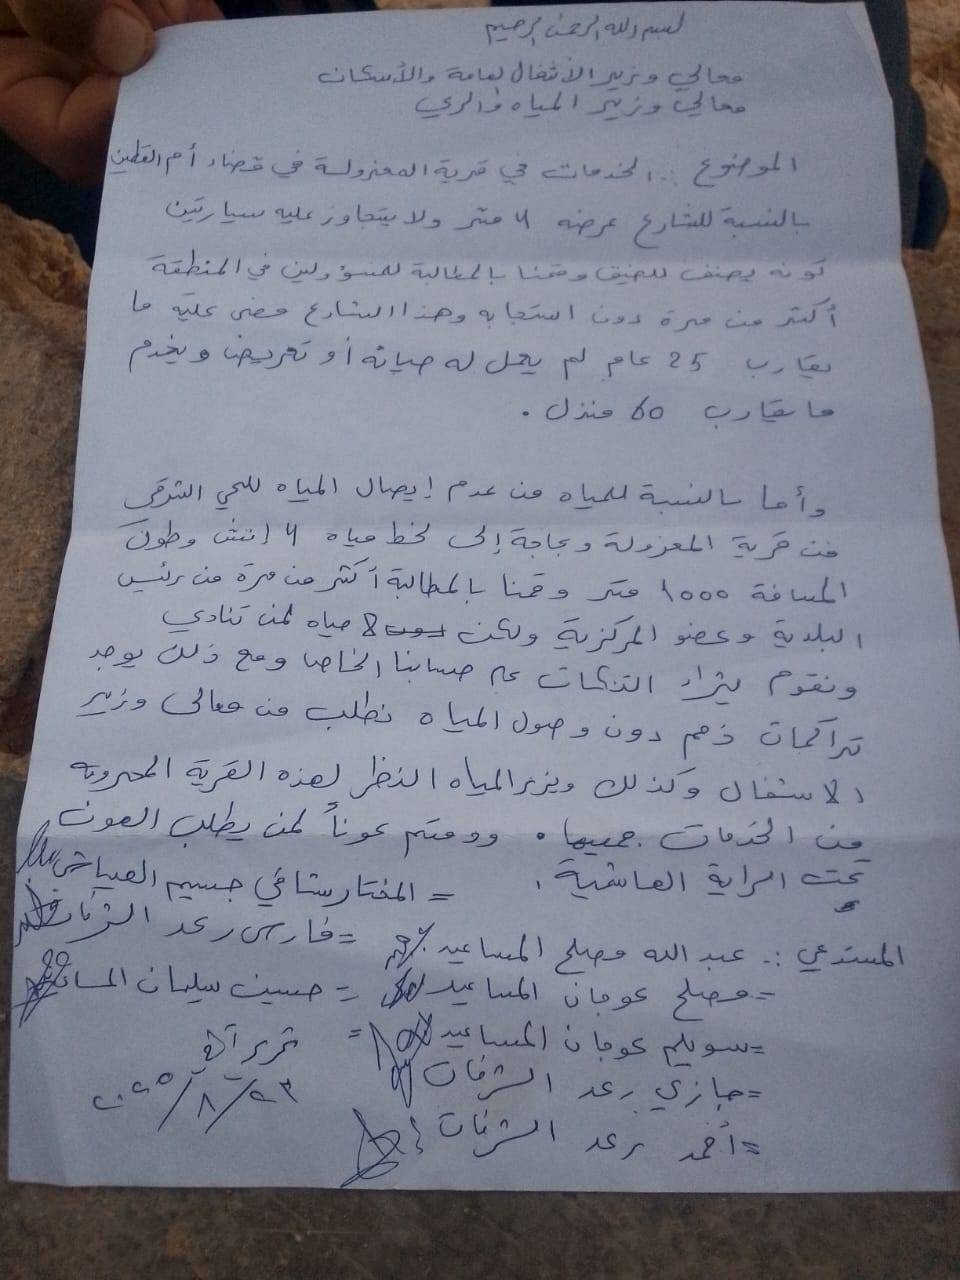 بسم الله الرحمن الرحيم
معالي وزير الأشغال لعامة والأسكان
معالي وزير المياه والري
الموضوع :. الخدمات في قرية المعزولة في قضاء أم القطين
بالنسبة للشارع عرضه 4 متر ولا يتجاوز عليه سيارتين
كونه يصنف للضيق وقمنا بالمطالبة للمسؤولين في المنطقة
أكثر من مرة دون استجابه وهذا الشارع مضى عليه ما
يقارب 25 عام لم يعمل له صيانه أو تعريض ويخدم
ما يقارب 60 منزل .
وأما بالنسبة للمياه من عدم إيصال المياه للحي الشرقي
من قرية المعزولة وبحاجة إلى خط مياه 4 انش وطول
المسافة 1000 متر وقمنا بالمطالبة أكثر من مرة من رئيس
البلدية وعضو المركزية ولكن لا حياه لمن تنادي
ونقوم بشراء التنكات على حسابنا الخاص ومع ذلك يوجد
تراكمات ذمم دون وصول المياه نطلب من معالي وزير
الاشغال وكذلك وزير المياه النظر لهذه القرية المحرومه
من الخدمات جميعها . ودمتم عوناً لمن يطلب العون
تحت الراية الهاشمية .
= المختار شافي جسيم العياش
= فارس رعد الشرفات
المستدعي :. عبد الله مصلح المساعيد
= مصلح عوجان المساعيد
= حسين سليمان المساعيد
= سويلم عوجان المساعيد
= جازي رعد الشرفات
= أحمد رعد الشرفات
تحرير آفي
٢٣/٨/٢٠٢٥